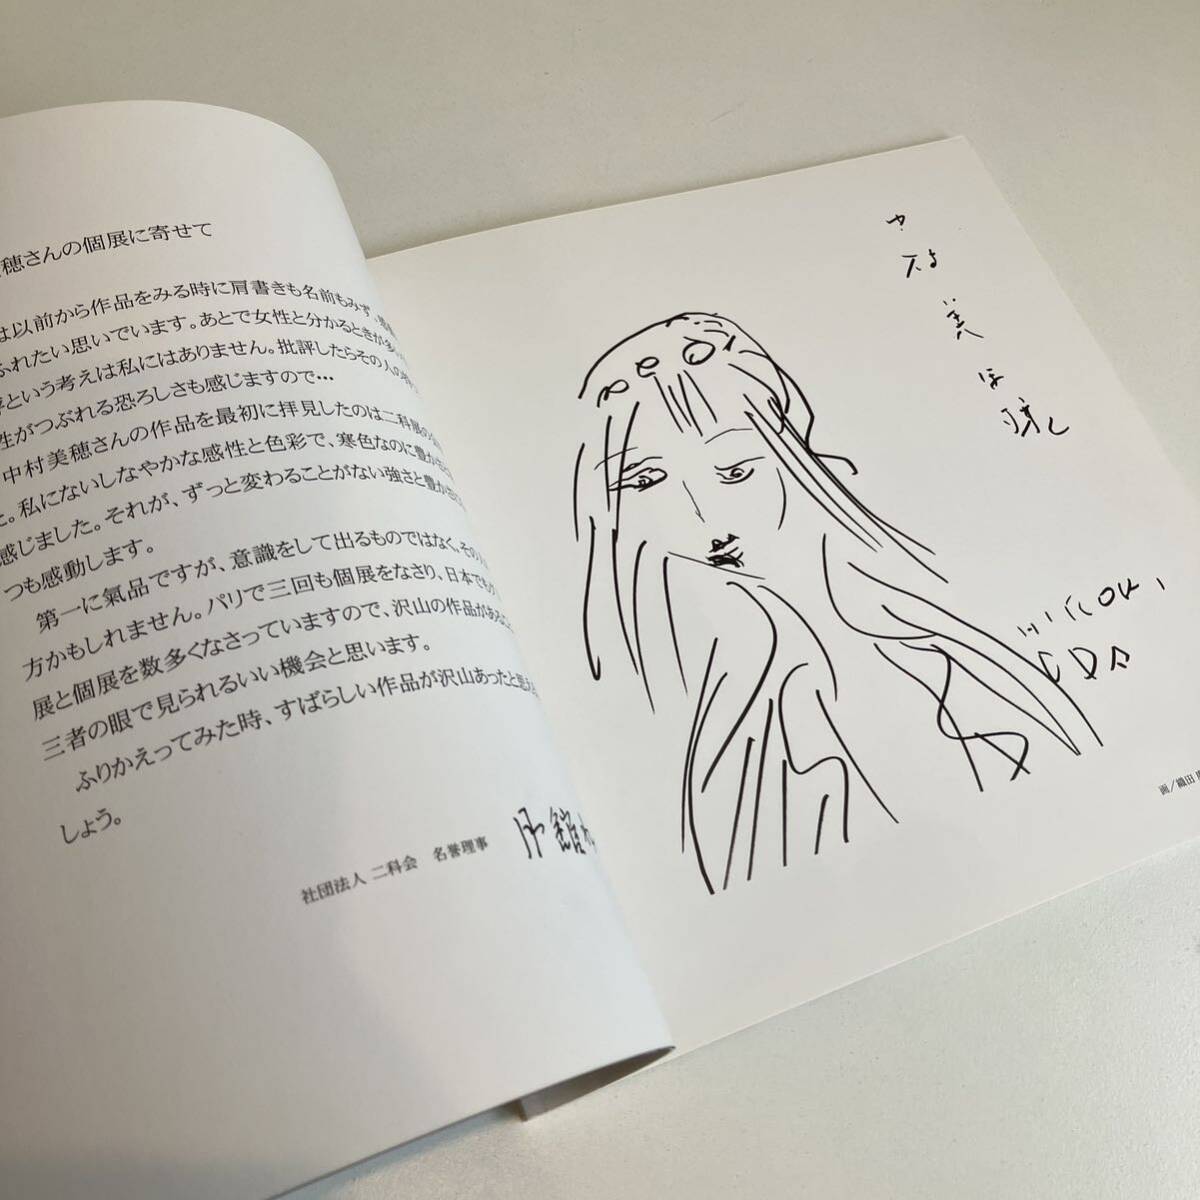 穂さんの個展に寄せて
は以前から作品をみる時に肩書きも名前もみず、
ふれたい思いでいます。あとで女性と分かるときが多
という考えは私にはありません。批評したらその人の
性がつぶれる恐ろしさも感じますので…
中村美穂さんの作品を最初に拝見したのは二科展の
た。私にないしなやかな感性と色彩で、寒色なのに豊か
感じました。それが、ずっと変わることがない強さと豊か
つも感動します。
第一に氣品ですが、意識をして出るものではなく、その
方かもしれません。パリで三回も個展をなさり、日本でも
展と個展を数多くなさっていますので、沢山の作品がある
三者の眼で見られるいい機会と思います。
ふりかえってみた時、すばらしい作品が沢山あったと思
しょう。
社団法人 二科会 名誉理事
中村美ほ
HIROKI
ODA
画/織田